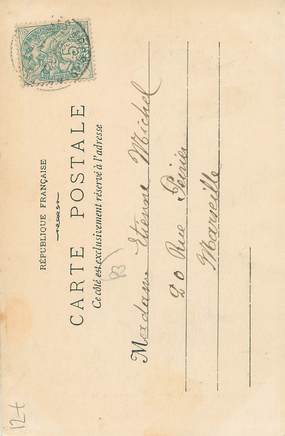 RÉPUBLIQUE FRANÇAISE
CARTE POSTALE
Ce côté est exclusivement réservé à l'adresse
Madame Etienne Michel
20 Rue
Marseille